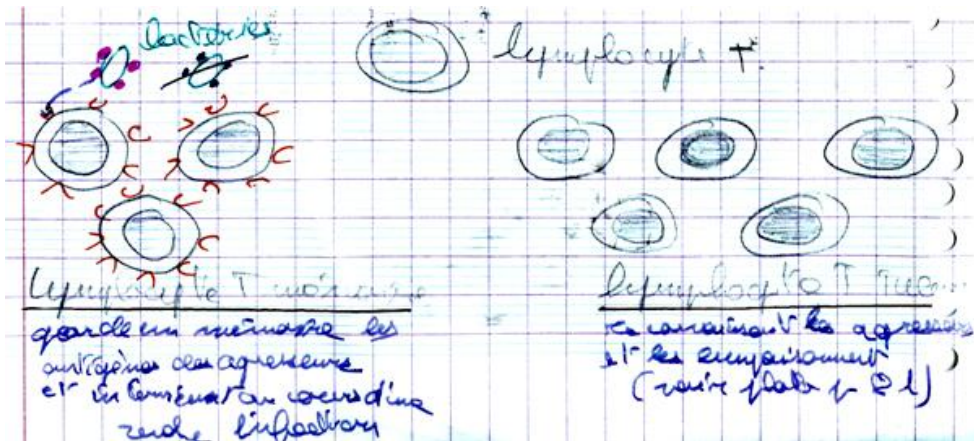 bactéries
lymphocyte T
lymphocyte T mémoire
garde en mémoire les
antigènes des agresseurs
et interviennent au cours d'une
infection
lymphocyte T
reconnaissent les agresseurs
et les empoisonnent
(voire photo p 21)